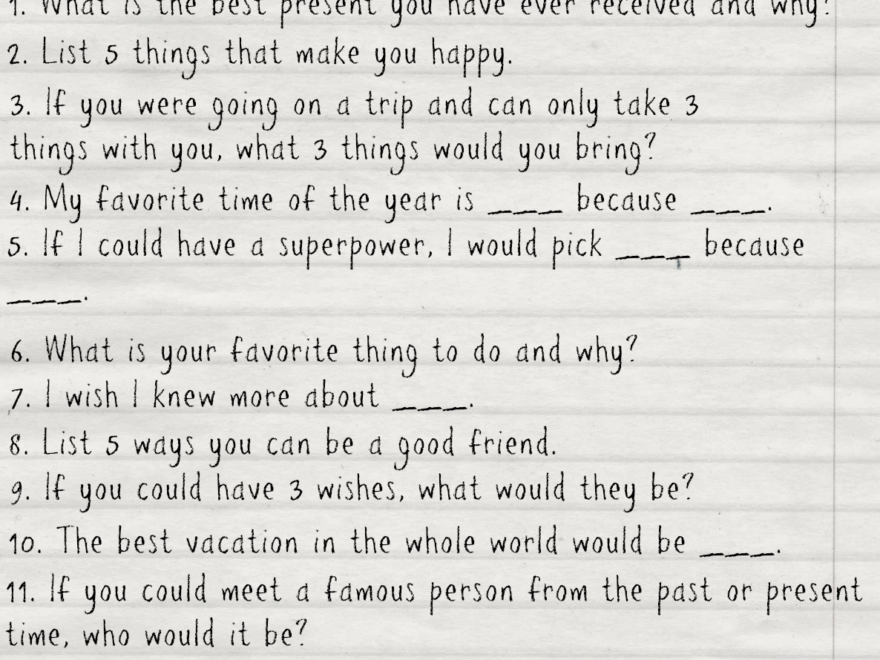 1. What is the best present you have ever received and why?
2. List 5 things that make you happy.
3. If you were going on a trip and can only take 3
things with you, what 3 things would you bring?
4. My favorite time of the year is ___ because ___.
5. If I could have a superpower, I would pick ___ because
___.
6. What is your favorite thing to do and why?
7. I wish I knew more about ___.
8. List 5 ways you can be a good friend.
9. If you could have 3 wishes, what would they be?
10. The best vacation in the whole world would be ___.
11. If you could meet a famous person from the past or present
time, who would it be?